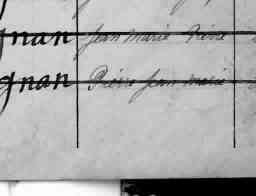 gnan Jean Marie Pierre
gnan Pierre Jean Marie